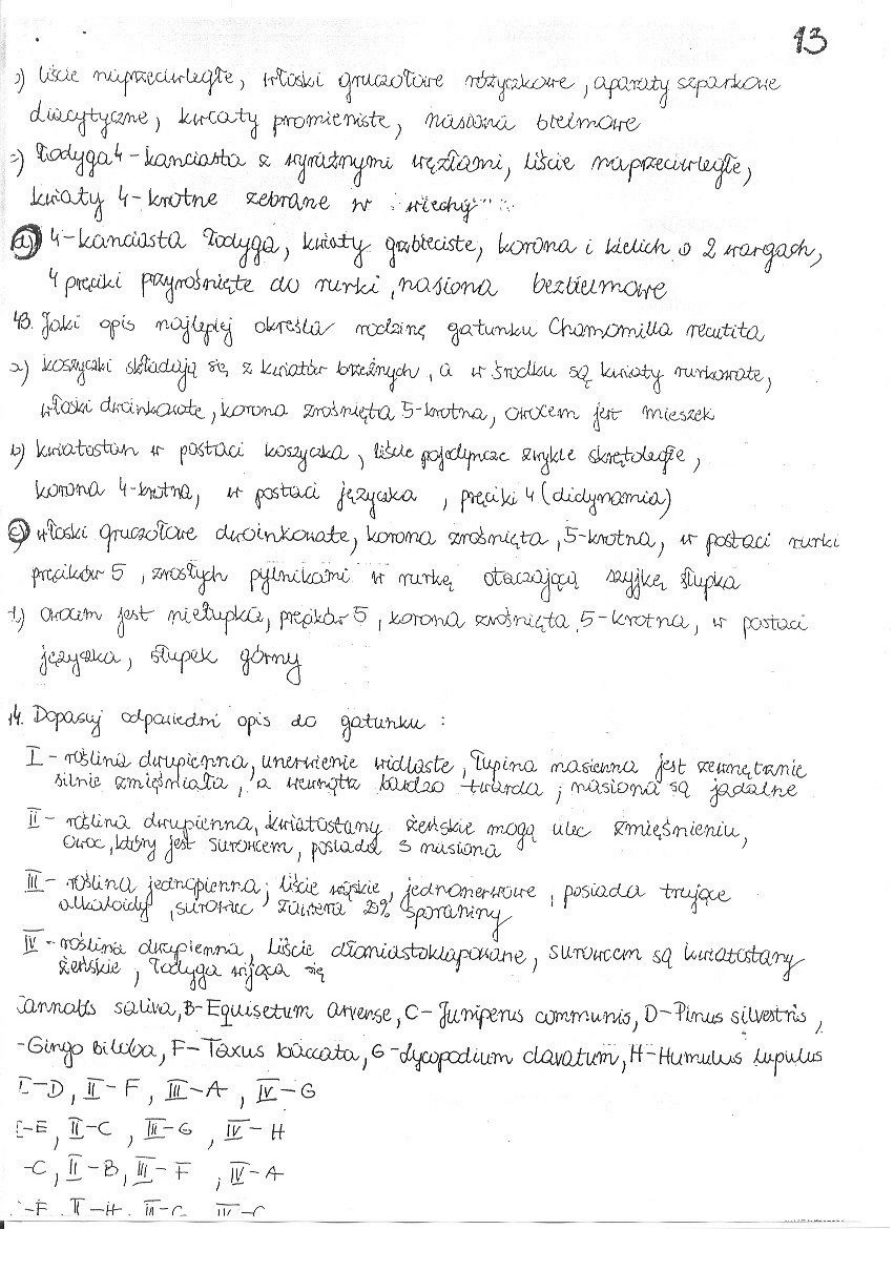 13
) liście naprzeciwległe, włoski gruczołowe różyczkowe, aparaty szparkowe
diacytyczne, kwiaty promieniste, nasiona bielmowe
) Łodyga 4-kanciasta z wyraźnymi węzłami, liście naprzeciwległe,
kwiaty 4-krotne zebrane w "wiechy"
d) 4-kanciasta łodyga, kwiaty grzbieciste, korona i kielich o 2 wargach,
4 pręciki przyrośnięte do rurki, nasiona bezbielmowe
43. Jaki opis najlepiej określa rodzinę gatunku Chamomilla recutita
a) koszyczki składają się z kwiatów brzeżnych, a w środku są kwiaty rurkowate,
włoski dwoinkowate, korona zrośnięta 5-krotna, owocem jest mieszek
b) kwiatostan w postaci koszyczka, liście pojedyncze zwykle skrętoległe,
korona 4-krotna, w postaci języczka, pręciki 4 (didynamia)
c) włoski gruczołowe dwoinkowate, korona zrośnięta, 5-krotna, w postaci rurki
pręcików 5, zrosłych pylnikami w rurkę otaczającą szyjkę słupka
d) owocem jest niełupka, pręcików 5, korona zrośnięta 5-krotna, w postaci
języczka, słupek górny
14. Dopasuj odpowiedni opis do gatunku:
I - roślina dwupienna, unerwienie widlaste, łupina nasienna jest zewnętrznie
silnie zmięśniała, a wewnątrz bardzo twarda; nasiona są jadalne
II - roślina dwupienna, kwiatostany żeńskie mogą ulec zmięśnieniu,
owoc, który jest surowcem, posiada 3 nasiona
III - roślina jednopienna; liście wąskie, jednonerwowe, posiada trujące
alkaloidy, surowiec zawiera 20% sporaniny
IV - roślina dwupienna, liście dłoniastoklapowane, surowcem są kwiatostany
żeńskie, łodyga wijąca się
Cannabis sativa, B-Equisetum arvense, C-Juniperus communis, D-Pinus silvestris,
-Gingo biloba, F-Taxus baccata, G-Lycopodium clavatum, H-Humulus lupulus
I-D, II-F, III-A, IV-G
I-E, II-C, III-G, IV-H
-C, II-B, III-F, IV-A
-F, II-H, III-C, IV-